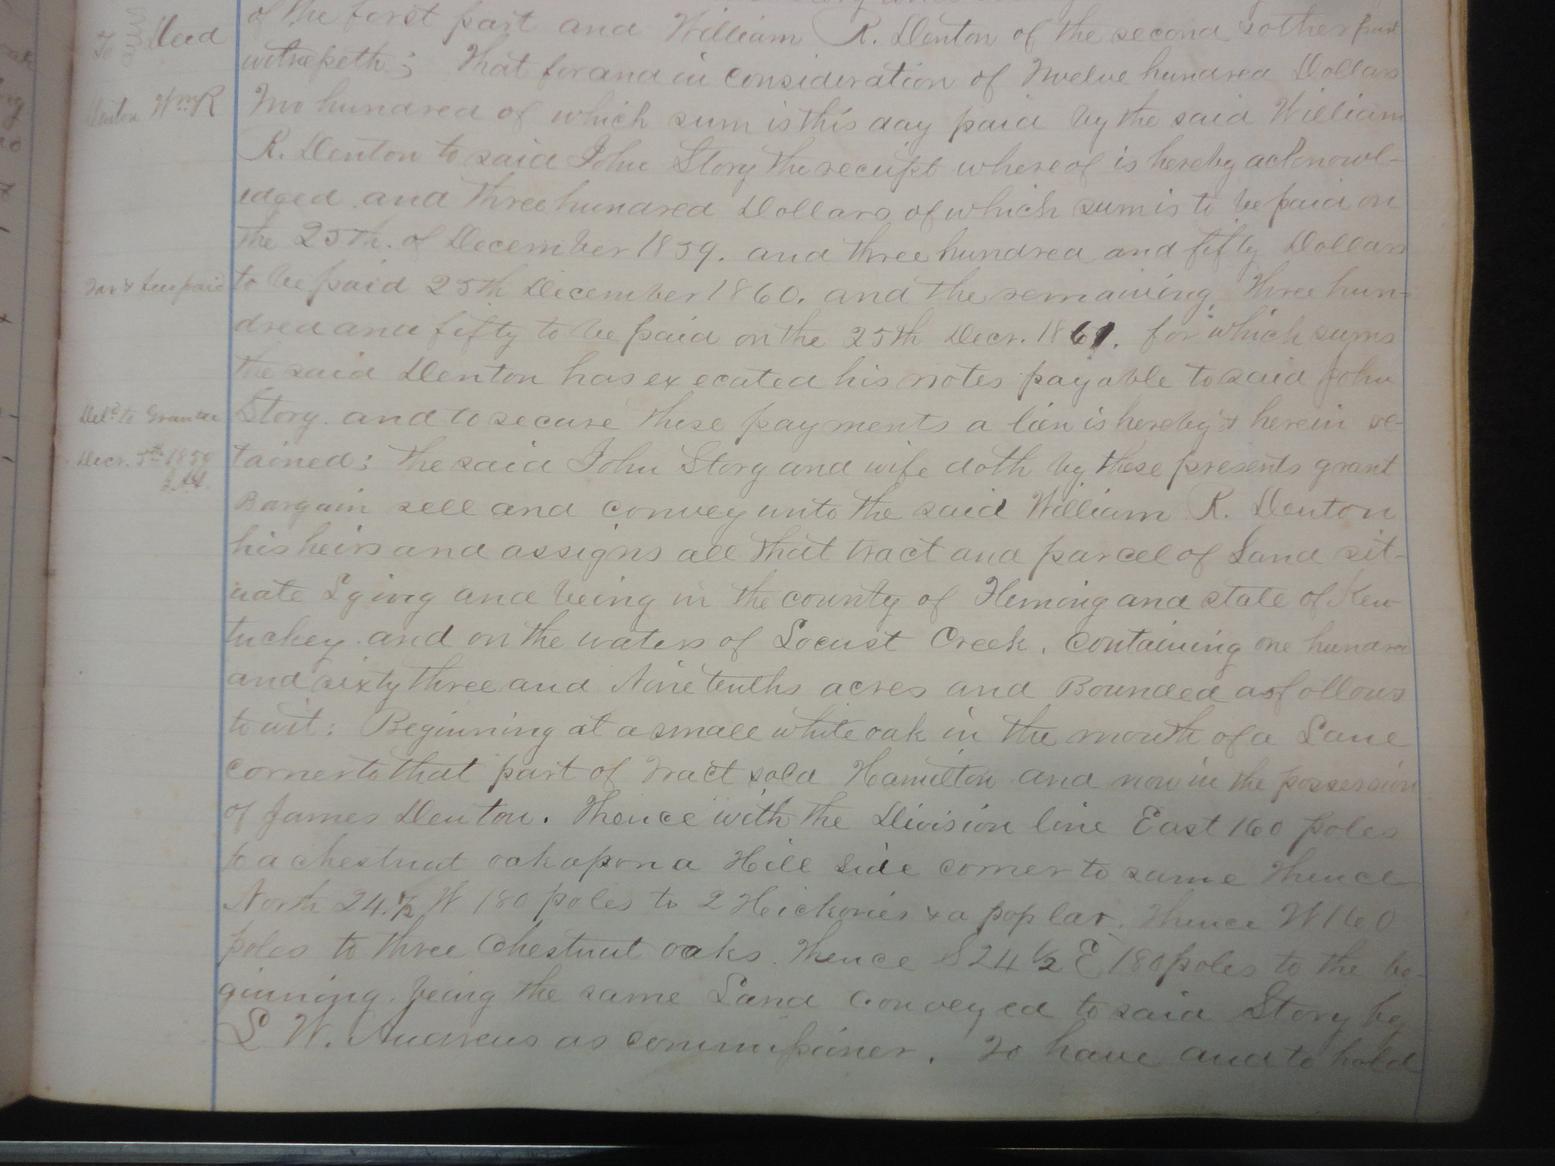 of the first part and William R. Denton of the second & other part
To Deed
witnesseth; That for and in consideration of Twelve hundred Dollars
Denton Wm R
Two hundred of which sum is this day paid by the said William
R. Denton to said John Story the receipt whereof is hereby acknowl-
edged and three hundred Dollars of which sum is to be paid on
the 25th. of December 1859. and three hundred and fifty Dollars
Tax & fee paid
to be paid 25th December 1860. and the remaining three hun-
dred and fifty to be paid on the 25th Decr. 1861. for which sums
the said Denton has executed his notes payable to said John
Deld. to Grantee
Story. and to secure these payments a lien is hereby & herein re-
Decr. 5th 1859
tained: the said John Story and wife doth by these presents grant
Bargain sell and convey unto the said William R. Denton
his heirs and assigns all that tract and parcel of Land sit-
uate Lying and being in the county of Fleming and state of Ken
tuckey. and on the waters of Locust Creek. Containing one hundred
and sixty three and Nine tenths acres and Bounded as follows
to wit: Beginning at a small white oak in the mouth of a Lane
corner to that part of tract sold Hamilton and now in the possession
of James Denton. Thence with the Division line East 160 poles
to a chestnut oak upon a Hill side corner to same Thence
North 24.½ W 180 poles to 2 Hickories & a poplar. Thence W 160
poles to three Chestnut oaks. Thence S 24 ½ E 180 poles to the be-
ginning. being the same Land Conveyed to said Story by
L W. Andrews as commissioner. To have and to hold